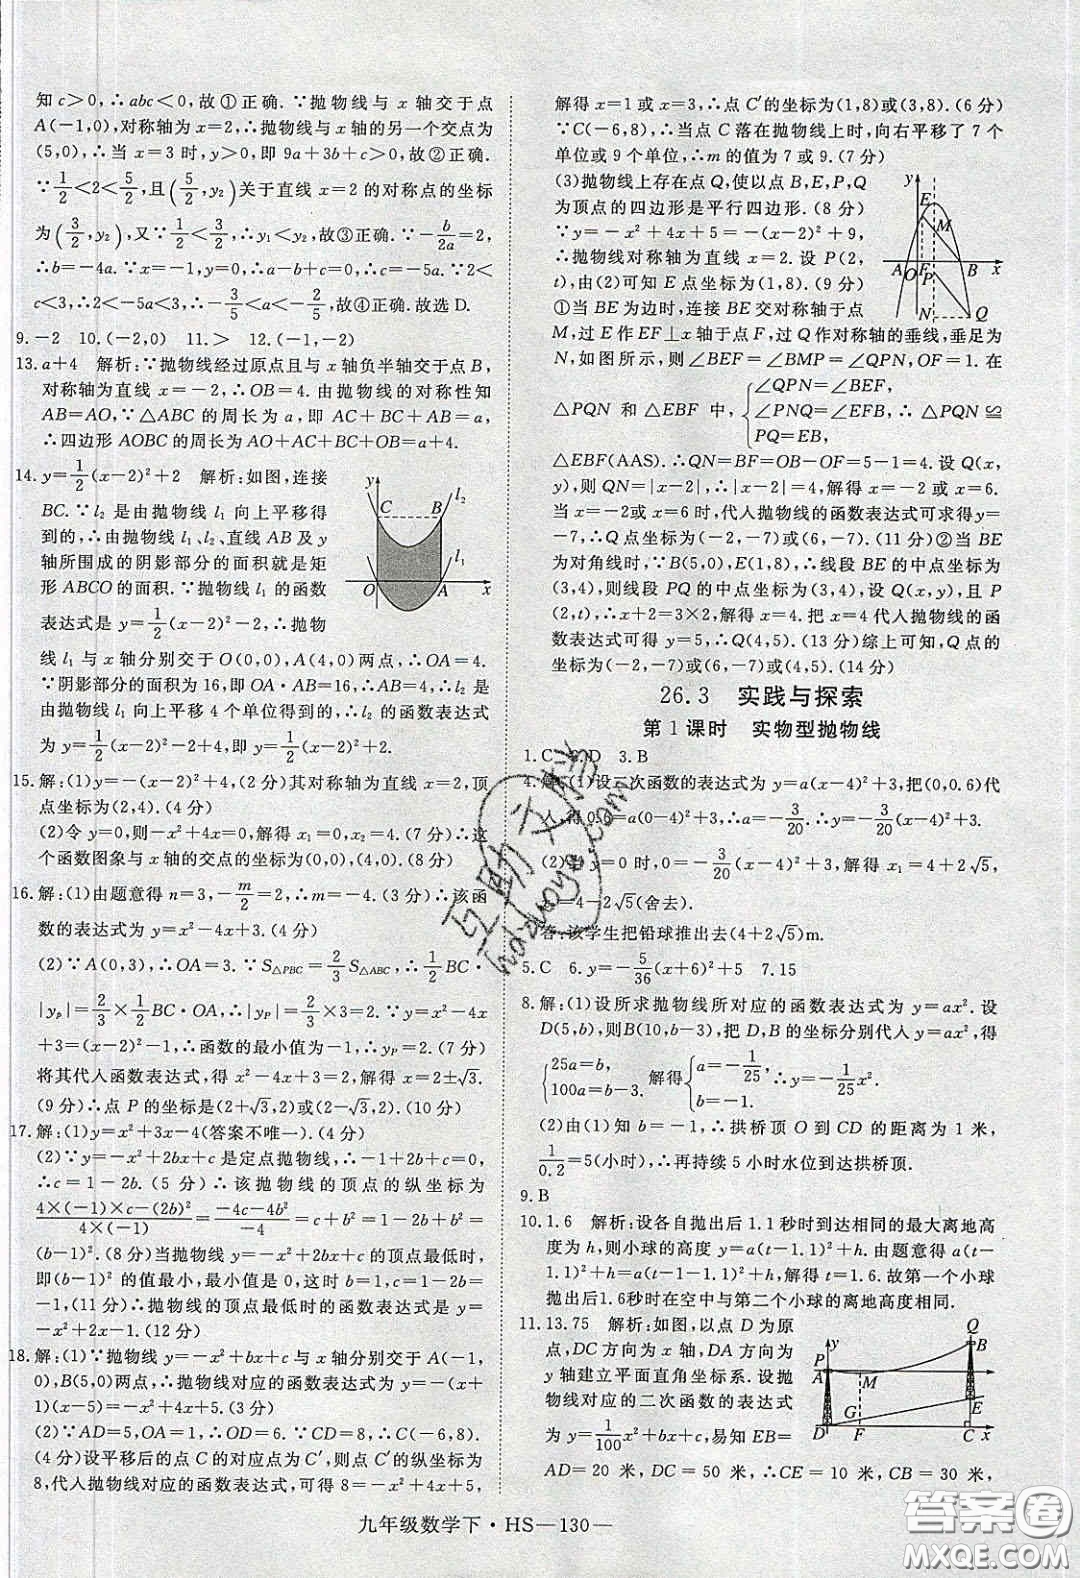 知 c＞0,∴abc＜0,故①正确.∵抛物线与 x 轴交于点
A(－1,0),对称轴为 x＝2,∴抛物线与 x 轴的另一个交点为
(5,0),∴当 x＝3 时,y＞0,即 9a＋3b＋c＞0,故②正确.
∵1/2＜2＜5/2,且(5/2,y₂)关于直线 x＝2 的对称点的坐标
为(3/2,y₂),又∵1/2＜3/2,∴y₁＜y₂,故③正确.∵－b/2a＝2,
∴b＝－4a.∵x＝－1,y＝0,∴a－b＋c＝0,∴c＝－5a.∵2＜
c＜3,∴2＜－5a＜3,∴－3/5＜a＜－2/5,故④正确.故选 D.
9.－2　10.(－2,0)　11.＞　12.(－1,－2)
13.a＋4　解析:∵抛物线经过原点且与 x 轴负半轴交于点 B,
对称轴为直线 x＝－2,∴OB＝4.由抛物线的对称性知
AB＝AO,∵△ABC 的周长为 a,即 AC＋BC＋AB＝a,
∴四边形 AOBC 的周长为 AO＋AC＋BC＋OB＝a＋4.
14.y＝1/2(x－2)²＋2　解析:如图,连接
BC.∵l₂ 是由抛物线 l₁ 向上平移得
到的,∴由抛物线 l₁、l₂、直线 AB 及 y
轴所围成的阴影部分的面积就是矩
形 ABCO 的面积.∵抛物线 l₁ 的函数
表达式是 y＝1/2(x－2)²－2,∴抛物
线 l₁ 与 x 轴分别交于 O(0,0),A(4,0)两点,∴OA＝4.
∵阴影部分的面积为 16,即 OA·AB＝16,∴AB＝4,∴l₂ 是
由 l₁ 向上平移 4 个单位得到的,∴l₂ 的函数表达式
为 y＝1/2(x－2)²－2＋4＝1/2(x－2)²＋2.
y C B l₂ l₁ O A x
15.解:(1)y＝－(x－2)²＋4,(2分)其对称轴为直线 x＝2,顶
点坐标为(2,4).(4分)
(2)令 y＝0,则－x²＋4x＝0,解得 x₁＝0,x₂＝4.(7分)∴这
个函数图象与 x 轴的交点的坐标为(0,0),(4,0).(8分)
16.解:(1)由题意得 n＝3,－m/2＝2,∴m＝－4.(3分)∴该函
数的表达式为 y＝x²－4x＋3.(4分)
(2)∵A(0,3),∴OA＝3.∵S△PBC＝2/3S△ABC,∴1/2BC·
|yP|＝2/3×1/2BC·OA,∴|yP|＝2/3×3＝2.∵y＝x²－4x
＋3＝(x－2)²－1,∴函数的最小值为－1,∴yP＝2.(7分)
将其代入函数表达式,得 x²－4x＋3＝2,解得 x＝2±√3.
(9分)∴点 P 的坐标是(2＋√3,2)或(2－√3,2).(10分)
17.解:(1)y＝x²＋3x－4(答案不唯一).(4分)
(2)∵y＝－x²＋2bx＋c 是定点抛物线,∴－1＋2b＋c＝0,
∴c＝1－2b.(6分)∴该抛物线的顶点的纵坐标为
4×(－1)×c－(2b)²/4×(－1)＝－4c－4b²/－4＝c＋b²＝b²－2b＋1＝
(b－1)².(8分)当抛物线 y＝－x²＋2bx＋c 的顶点最低时,
即(b－1)² 的值最小,最小值是 0,这时 b＝1,c＝1－2b＝
－1,(11分)∴抛物线的顶点最低时的函数表达式是 y＝
－x²＋2x－1.(12分)
18.解:(1)∵抛物线 y＝－x²＋bx＋c 与 x 轴分别交于 A(－1,
0),B(5,0)两点,∴抛物线对应的函数表达式为 y＝－(x＋
1)(x－5)＝－x²＋4x＋5.(3分)
(2)∵AD＝5,OA＝1,∴OD＝6.∵CD＝8,∴C(－6,8).
(4分)设平移后的点 C 的对应点为 C′,则点 C′的纵坐标为
8,代入抛物线对应的函数表达式,可得 8＝－x²＋4x＋5,
解得 x＝1 或 x＝3,∴点 C′的坐标为(1,8)或(3,8).(6分)
∵C(－6,8),∴当点 C 落在抛物线上时,向右平移了 7 个
单位或 9 个单位,∴m 的值为 7 或 9.(7分)
(3)抛物线上存在点 Q,使以点 B,E,P,Q
为顶点的四边形是平行四边形.(8分)
∵y＝－x²＋4x＋5＝－(x－2)²＋9,
∴抛物线对称轴为直线 x＝2.设 P(2,
t),由(2)可知 E 点坐标为(1,8).(9分)
①当 BE 为边时,连接 BE 交对称轴于点
M,过 E 作 EF⊥x 轴于点 F,过 Q 作对称轴的垂线,垂足为
N,如图所示,则∠BEF＝∠BMP＝∠QPN,OF＝1.在
△PQN 和△EBF 中,{∠QPN＝∠BEF,
∠PNQ＝∠EFB,∴△PQN≌
PQ＝EB,
△EBF(AAS).∴QN＝BF＝OB－OF＝5－1＝4.设 Q(x,
y),则 QN＝|x－2|,∴|x－2|＝4,解得 x＝－2 或 x＝6.
当 x＝－2或 x＝6 时,代入抛物线的函数表达式可求得y＝
－7,∴Q(－2,－7)或(6,－7).(11分)②当 BE
为对角线时,∵B(5,0),E(1,8),∴线段 BE 的中点坐标为
(3,4),则线段 PQ 的中点坐标为(3,4),设 Q(x,y),且 P
(2,t),∴x＋2＝3×2,解得 x＝4.把 x＝4 代入抛物线的函
数表达式可得 y＝5,∴Q(4,5).(13分)综上可知,Q 点的
坐标为(－2,－7)或(6,－7)或(4,5).(14分)
y E M A O F P B x N Q
26.3　实践与探索
第 1 课时　实物型抛物线
1.C　2.D　3.B
4.解:(1)设二次函数的表达式为 y＝a(x－4)²＋3,把(0,0.6)代
入,得 0.6＝a(0－4)²＋3,∴a＝－3/20.∴y＝－3/20(x－4)²＋3.
(2)当 y＝0 时,0＝－3/20(x－4)²＋3,解得 x₁＝4＋2√5,
＝4－2√5(舍去).
答:该学生把铅球推出去(4＋2√5)m.
5.C　6.y＝－5/36(x＋6)²＋5　7.15
8.解:(1)设所求抛物线所对应的函数表达式为 y＝ax².设
D(5,b),则B(10,b－3),把 D,B 的坐标分别代入 y＝ax²,得
{25a＝b,
100a＝b－3. 解得{a＝－1/25,
b＝－1. ∴y＝－1/25x².
(2)由(1)知 b＝－1,∴拱桥顶 O 到 CD 的距离为 1 米,
1/0.2＝5(小时),∴再持续 5 小时水位到达拱桥顶.
9.B
10.1.6　解析:设各自抛出后 1.1 秒时到达相同的最大离地高
度为 h,则小球的高度 y＝a(t－1.1)²＋h.由题意得 a(t－
1.1)²＋h＝a(t－1－1.1)²＋h,解得 t＝1.6.故第一个小球
抛出后1.6秒时在空中与第二个小球的离地高度相同.
11.13.75　解析:如图,以点 D 为原
点,DC 方向为 x 轴,DA 方向为
y 轴建立平面直角坐标系.设抛
物线对应的二次函数的表达式
为 y＝1/100x²＋bx＋c,易知 EB＝
AD＝20 米,DC＝50 米,∴CE＝10 米,CB＝30 米,
Q y P B A M E G D F C x
九年级数学下·HS—130—
互助文档
hdzuoye.com
答案圈
MXQE.COM